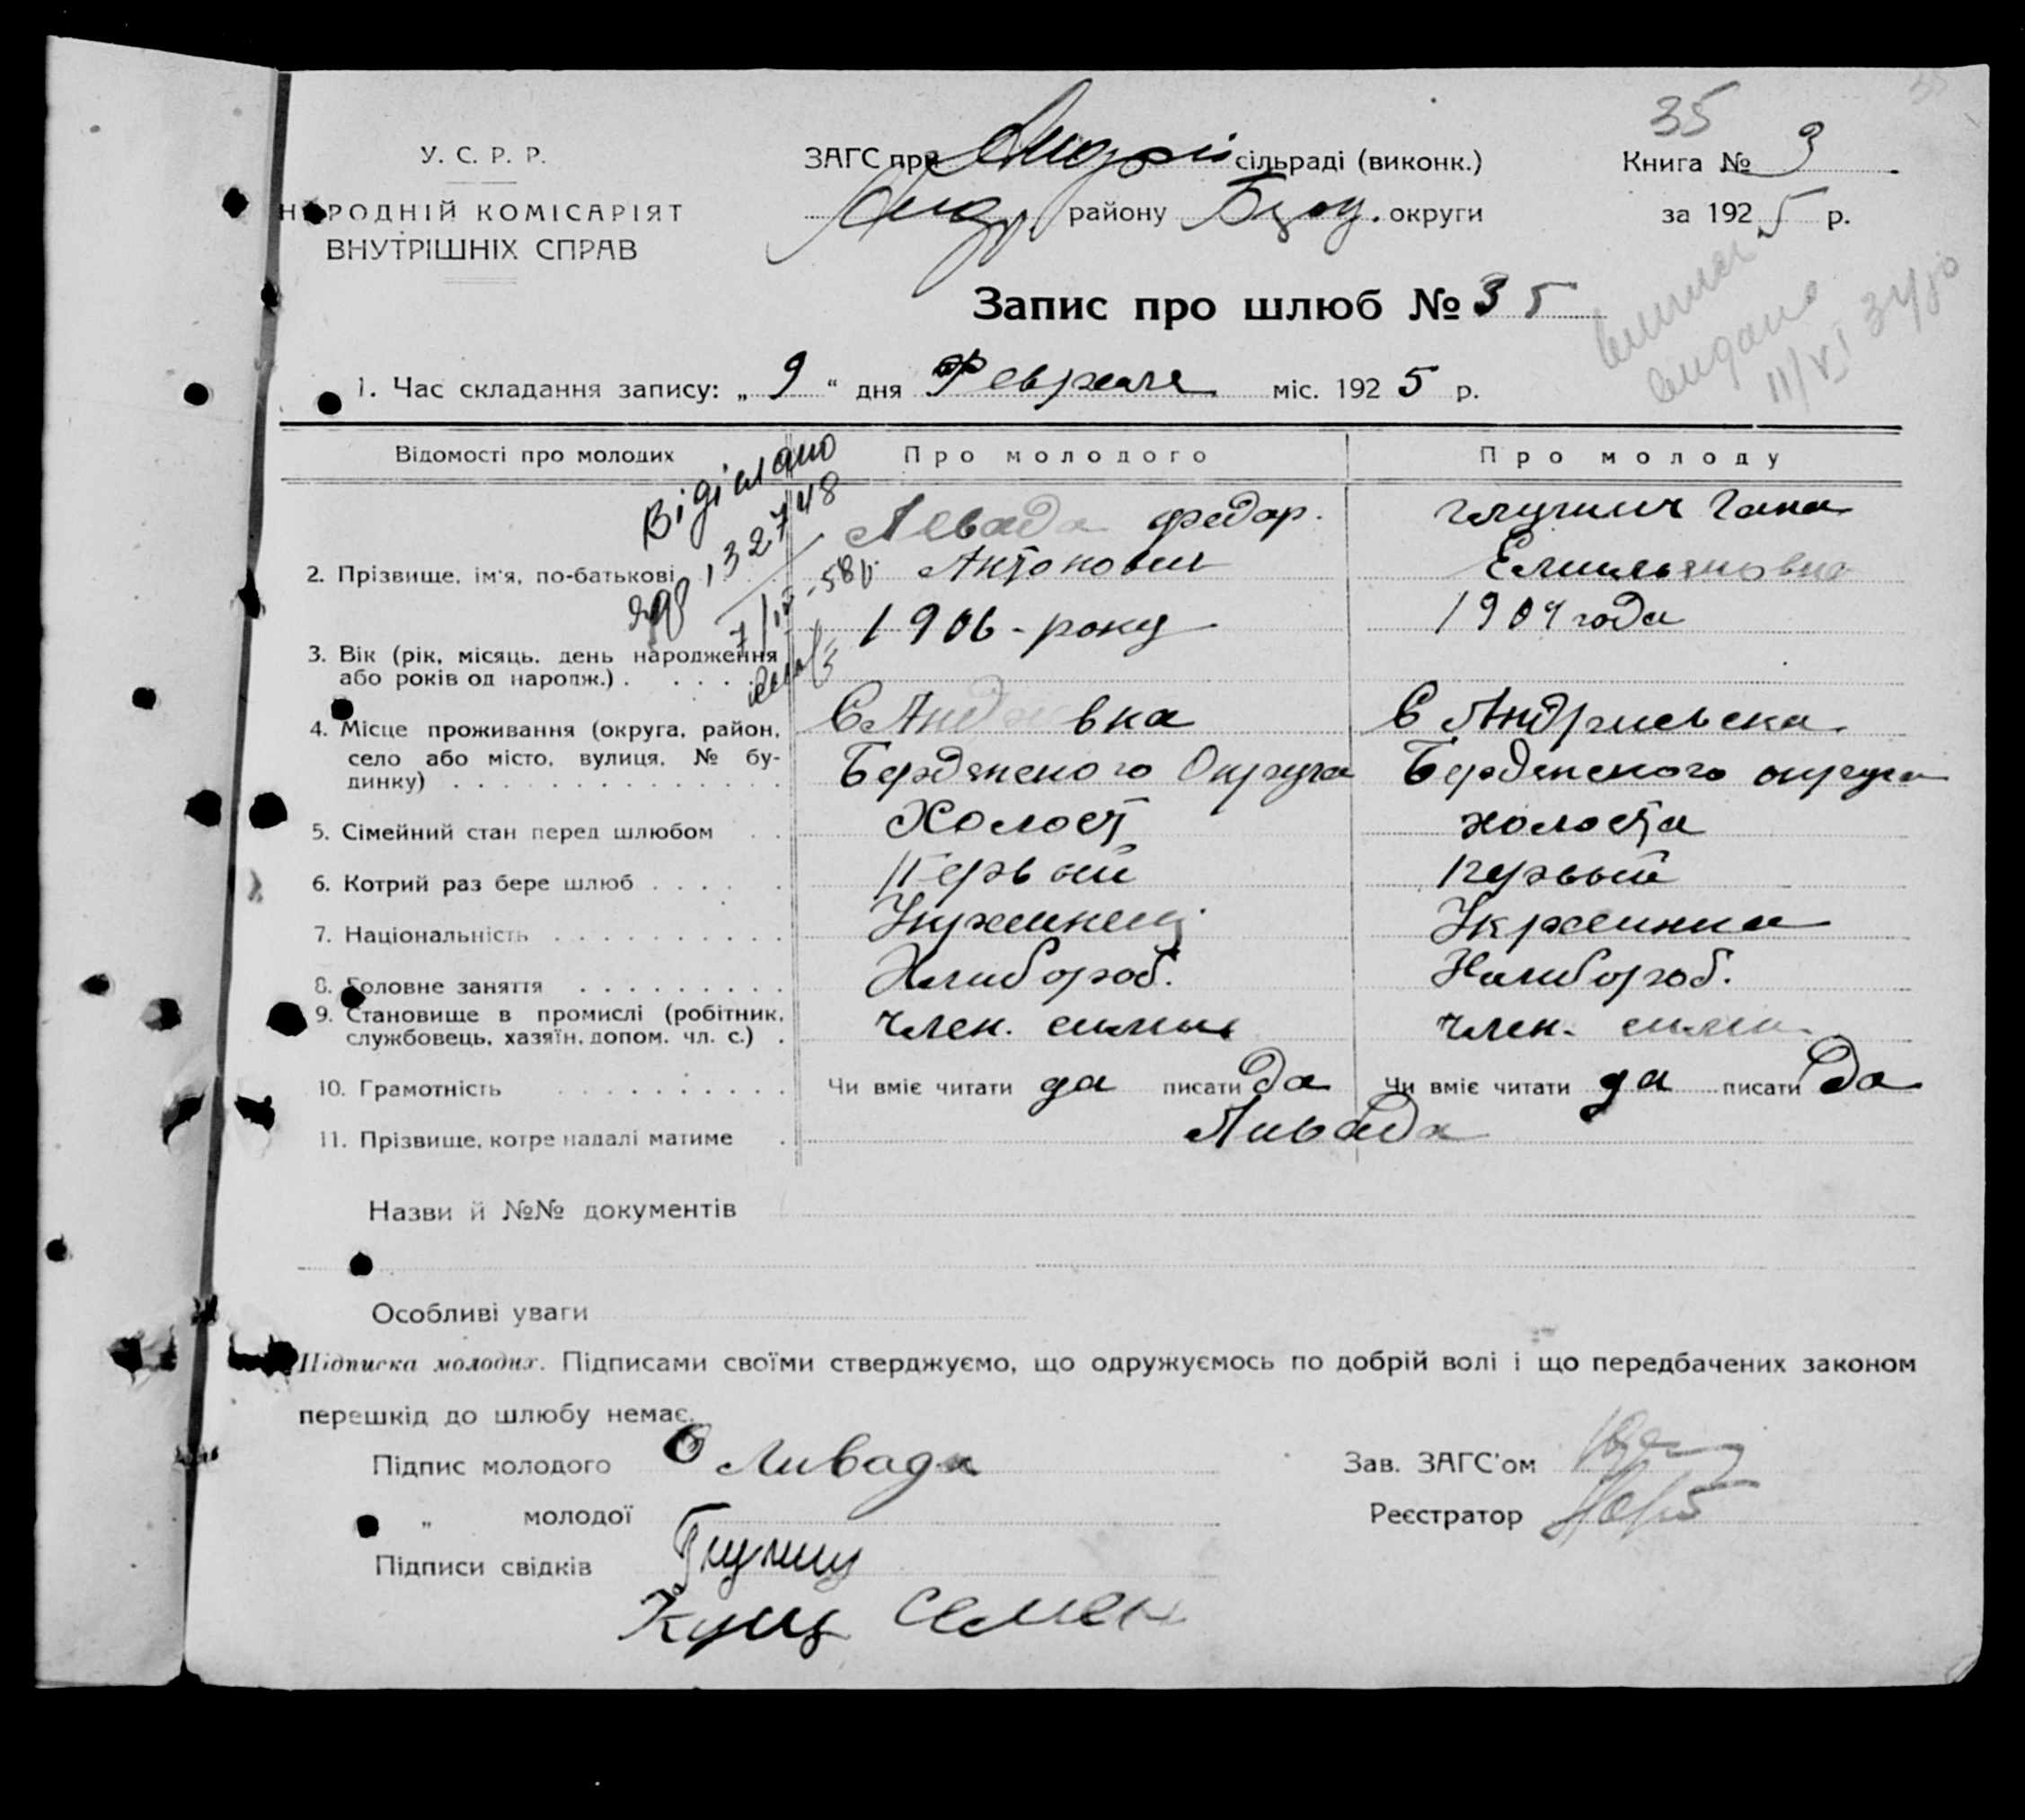 35
У. С. Р. Р.
НАРОДНІЙ КОМІСАРІЯТ
ВНУТРІШНІХ СПРАВ
ЗАГС при Андрії сільраді (виконк.)
Андр району Бердян. округи
Книга № 3
за 1925 р.
Запис про шлюб № 35
видано
11/VI
1. Час складання запису: „ 9 “ дня Февраля міс. 1925 р.
Відомості про молодих
Про молодого
Про молоду
Відіслано
7/IV-58 р.
2. Прізвище, ім'я, по-батькові
Левада Федор.
Антонович
Гана
Емильяновна
3. Вік (рік, місяць, день народження
або років од народж.) . . . . .
1906-року
1904 года
4. Місце проживання (округа, район,
село або місто, вулиця, № бу-
динку) . . . . . . . . . . . . . .
С Анд вка
Бердянского Округа
С Андриевска
Бердянского округа
5. Сімейний стан перед шлюбом . .
Холост
холоста
6. Котрий раз бере шлюб . . . . .
Первый
первый
7. Національність . . . . . . . . . .
Украинец
Украинка
8. Головне заняття . . . . . . . . .
Хлибороб.
Хлибороб.
9. Становище в промислі (робітник,
службовець, хазяїн, допом. чл. с.) .
член. симьи
член. сими
10. Грамотність . . . . . . . . . .
Чи вміє читати да писати да
Чи вміє читати да писати да
11. Прізвище, котре надалі матиме .
Ливада
Назви й №№ документів
Особливі уваги
Підписка молодих. Підписами своїми стверджуємо, що одружуємось по добрій волі і що передбачених законом
перешкід до шлюбу немає.
Підпис молодого Ливада
„ молодої
Підписи свідків
Кущ Семен
Зав. ЗАГС'ом
Реєстратор